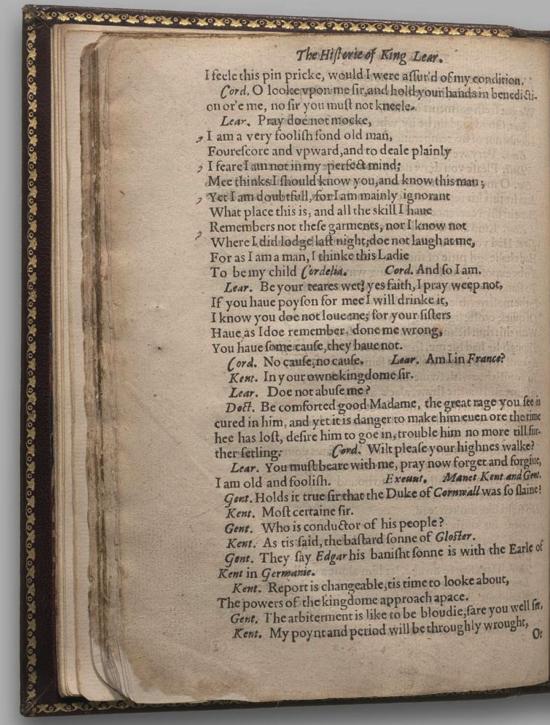 The Historie of King Lear.
I feele this pin pricke, would I were assur'd of my condition.
Cord. O looke vpon me sir, and hold your hands in benedicti-
on or'e me, no sir you must not kneele.
Lear. Pray doe not mocke,
I am a very foolish fond old man,
Fourescore and vpward, and to deale plainly
I feare I am not in my perfect mind;
Mee thinks I should know you, and know this man;
Yet I am doubtfull, for I am mainly ignorant
What place this is, and all the skill I haue
Remembers not these garments, nor I know not
Where I did lodge last night; doe not laugh at me,
For as I am a man, I thinke this Ladie
To be my child Cordelia. Cord. And so I am.
Lear. Be your teares wet? yes faith, I pray weep not,
If you haue poyson for mee I will drinke it,
I know you doe not loue me, for your sisters
Haue as I doe remember, done me wrong,
You haue some cause, they haue not.
Cord. No cause, no cause. Lear. Am I in France?
Kent. In your owne kingdome sir.
Lear. Doe not abuse me?
Doct. Be comforted good Madame, the great rage you see is
cured in him, and yet it is danger to make him euen ore the time
hee has lost, desire him to goe in, trouble him no more till fur-
ther setling: Cord. Wilt please your highnes walke?
Lear. You must beare with me, pray now forget and forgiue,
I am old and foolish. Exeunt. Manet Kent and Gent.
Gent. Holds it true sir that the Duke of Cornwall was so slaine?
Kent. Most certaine sir.
Gent. Who is conductor of his people?
Kent. As tis said, the bastard sonne of Gloster.
Gent. They say Edgar his banisht sonne is with the Earle of
Kent in Germanie.
Kent. Report is changeable, tis time to looke about,
The powers of the kingdome approach apace.
Gent. The arbiterment is like to be bloudie, fare you well sir,
Kent. My poynt and period will be throughly wrought,
Or